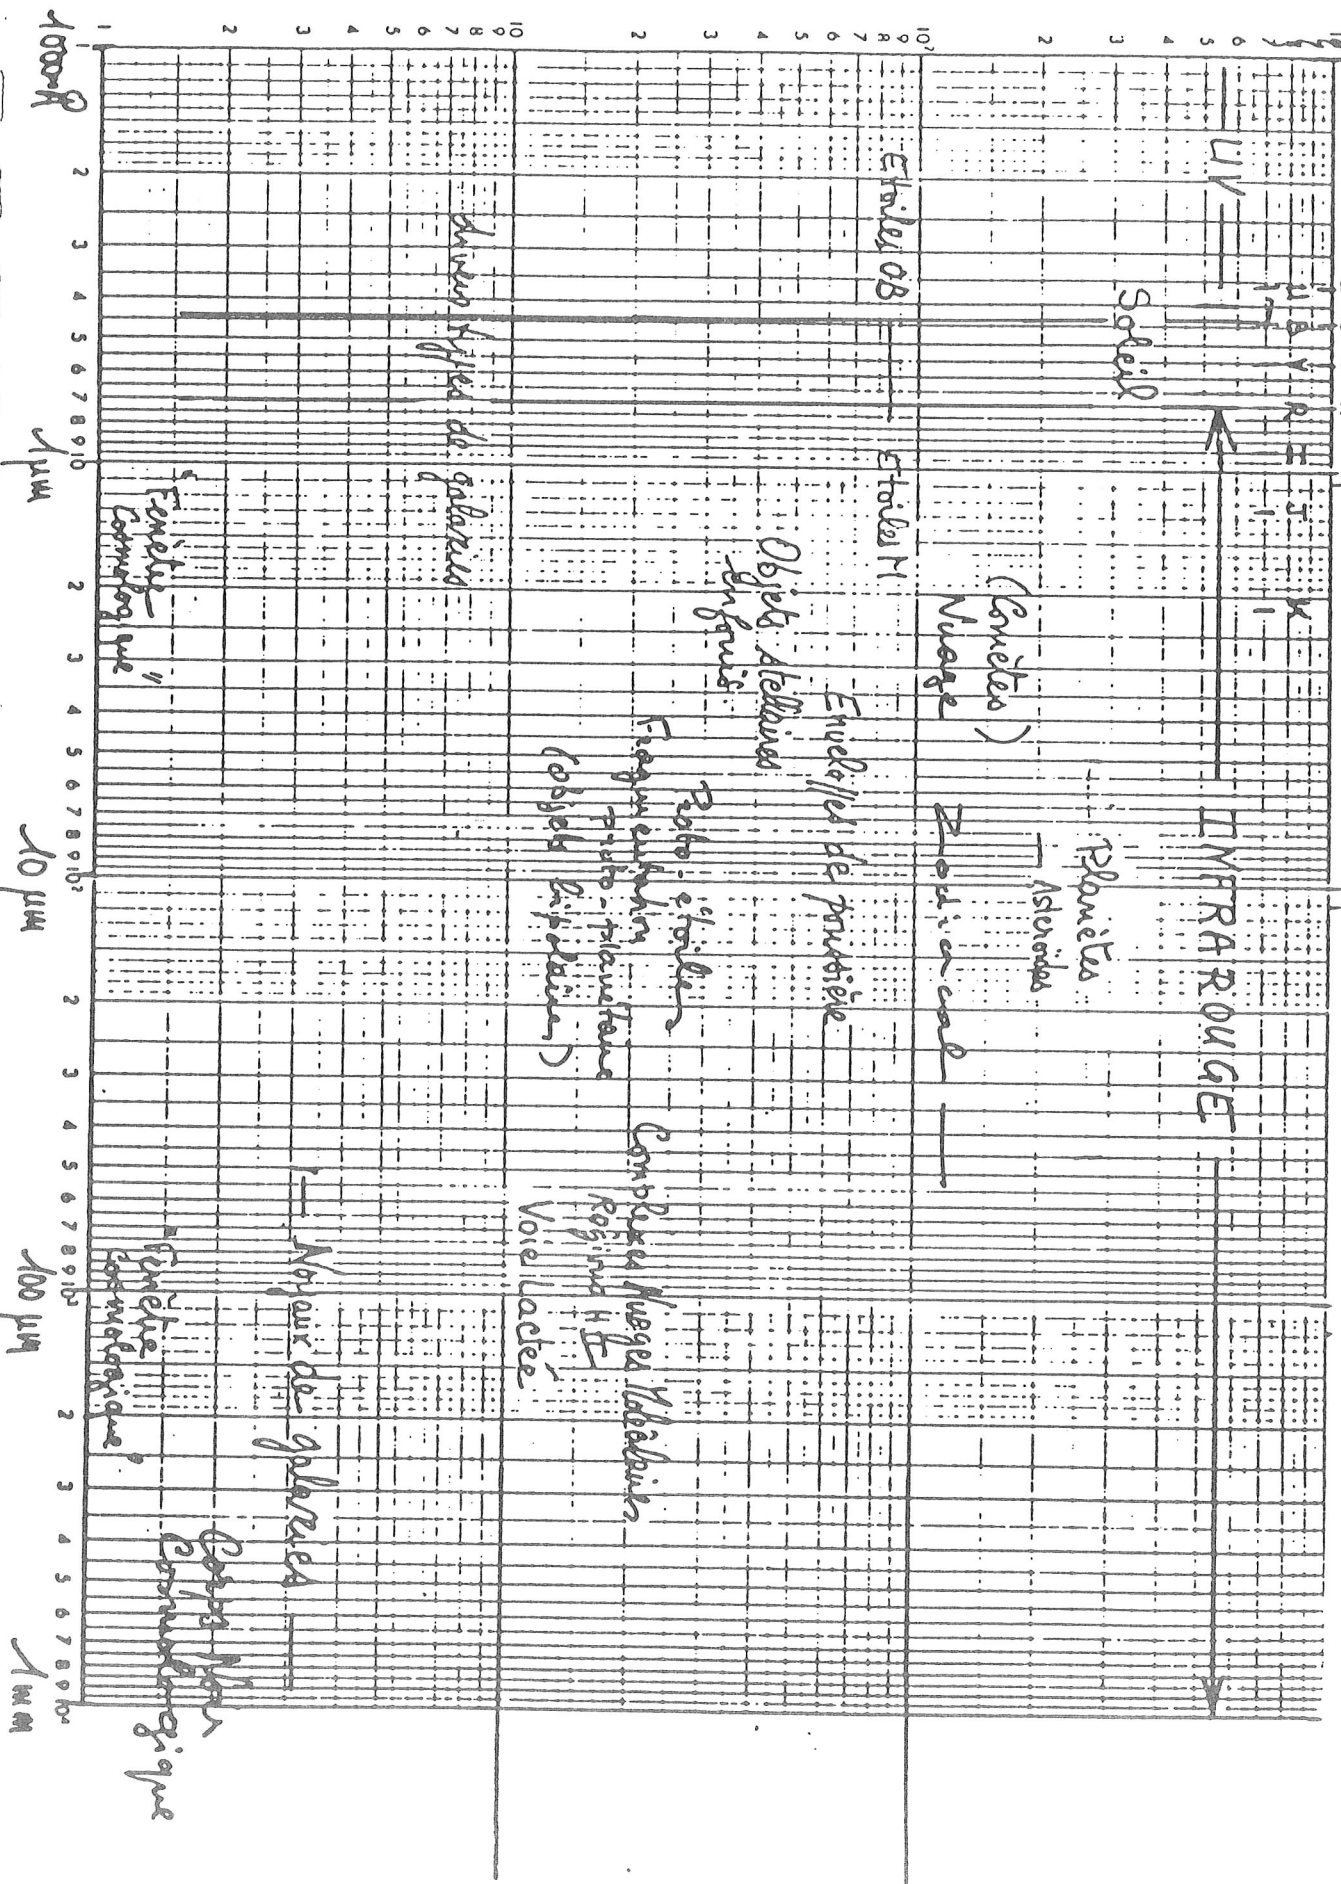 UV
INFRAROUGE
U B V R I J K
Soleil
Planètes
Astéroïdes
(Comètes)
Nuage Zodiacal
Etoiles OB
Etoiles M
Enveloppes de poussière
Objets stellaires
enfouis
Proto-étoiles
Fragmentation
Proto-planétaire
(objets bipolaires)
Complexes Nuages Moléculaires
Régions H II
Voie Lactée
divers types de galaxies
Noyaux de galaxies
"Fenêtre
Cosmologique"
"Fenêtre
Cosmologique"
Corps Noir
Cosmologique
1 2 3 4 5 6 7 8 9 10 2 3 4 5 6 7 8 9 10² 2 3 4 5 6 7 8 9 10³ 2 3 4 5 6 7 8 9 10⁴
1 2 3 4 5 6 7 8 9 10 2 3 4 5 6 7 8 9 10² 2 3 4 5 6 7
1000Å
1µm
10µm
100µm
1mm